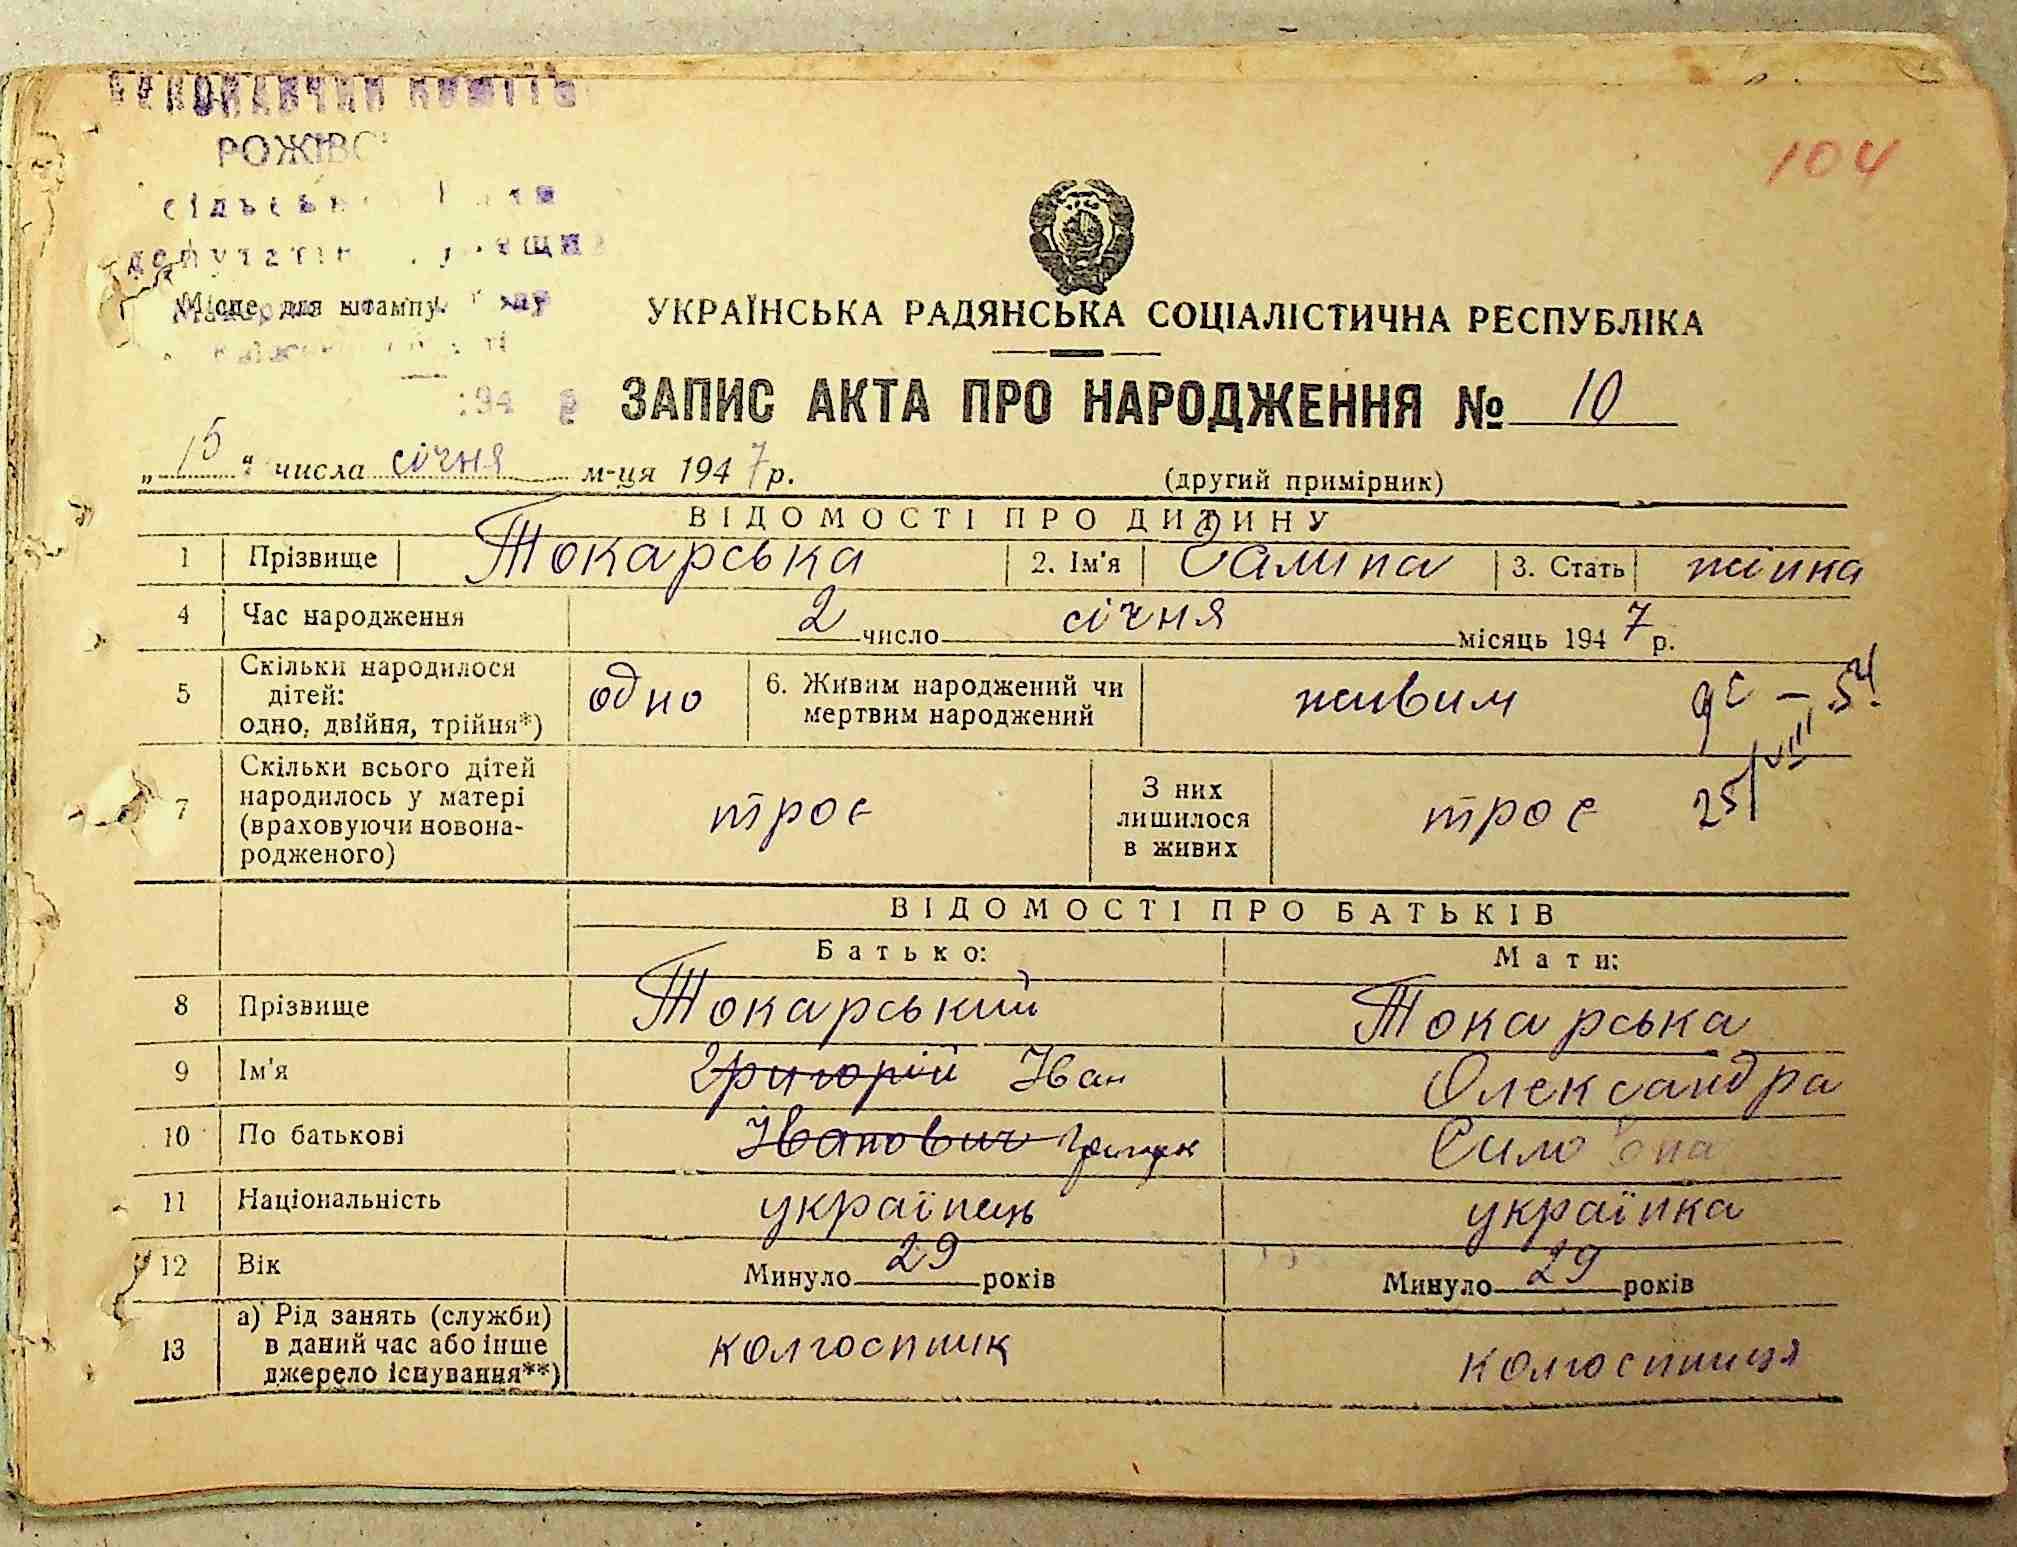 ВИКОНАВЧИЙ КОМІТЕТ
РОЖІВС
104
Місце для штампу
УКРАЇНСЬКА РАДЯНСЬКА СОЦІАЛІСТИЧНА РЕСПУБЛІКА
194 р
ЗАПИС АКТА ПРО НАРОДЖЕННЯ № 10
„15“ числа січня м-ця 1947 р.
(другий примірник)
ВІДОМОСТІ ПРО ДИТИНУ
1 Прізвище Токарська 2. Ім'я Галина 3. Стать жінка
4 Час народження 2 число січня місяць 1947 р.
5 Скільки народилося дітей: одно, двійня, трійня*) одно 6. Живим народжений чи мертвим народжений живим
7 Скільки всього дітей народилось у матері (враховуючи новонародженого) троє З них лишилося в живих троє 25/VIII
ВІДОМОСТІ ПРО БАТЬКІВ
Батько: Мати:
8 Прізвище Токарський Токарська
9 Ім'я Григорій Іван Олександра
10 По батькові Іванович
11 Національність українець українка
12 Вік Минуло 29 років Минуло 29 років
13 а) Рід занять (служби) в даний час або інше джерело існування**) колгоспник колгоспниця